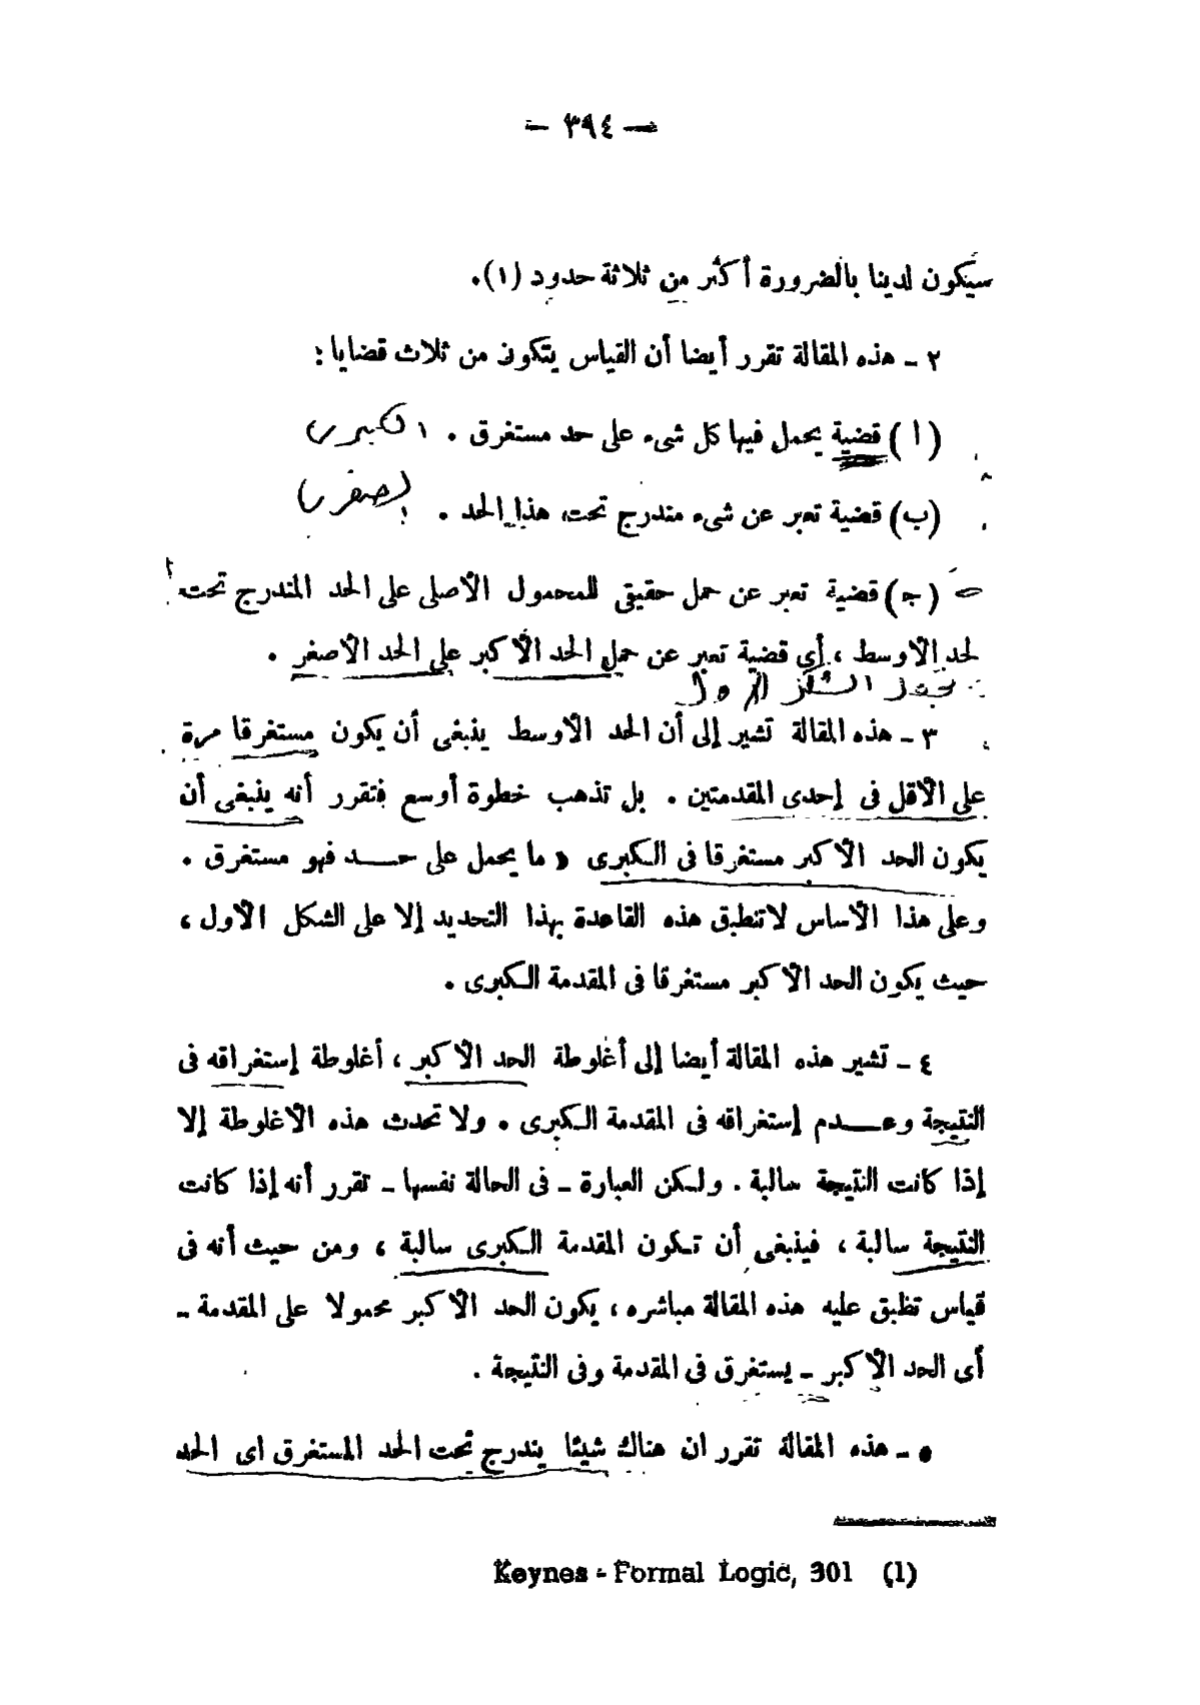 — ٣٩٤ —
سيكون لدينا بالضرورة أكثر من ثلاثة حدود (١).
٢ ـ هذه المقالة تقرر أيضا أن القياس يتكون من ثلاث قضايا :
(ا) قضية يحمل فيها كل شىء على حد مستغرق . الكبرى
(ب) قضية تعبر عن شىء مندرج تحت هذا الحد . الصغرى
(ج) قضية تعبر عن حمل حقيقى للمحمول الأصلى على الحد المندرج تحت
لحد الاوسط ، أى قضية تعبر عن حمل الحد الأكبر على الحد الأصغر .
الشكل الاول
٣ ـ هذه المقالة تشير إلى أن الحد الأوسط ينبغى أن يكون مستغرقا مرة
على الأقل فى إحدى المقدمتين . بل تذهب خطوة أوسع فتقرر أنه ينبغى أن
يكون الحد الأكبر مستغرقا فى الكبرى « ما يحمل على حد فهو مستغرق .
وعلى هذا الأساس لا تنطبق هذه القاعدة بهذا التحديد إلا على الشكل الأول ،
حيث يكون الحد الأكبر مستغرقا فى المقدمة الكبرى .
٤ ـ تشير هذه المقالة أيضا إلى أغلوطة الحد الأكبر ، أغلوطة إستغراقه فى
النتيجة وعدم إستغراقه فى المقدمة الكبرى . ولا تحدث هذه الأغلوطة إلا
إذا كانت النتيجة سالبة . ولكن العبارة ـ فى الحالة نفسها ـ تقرر أنه إذا كانت
النتيجة سالبة ، فينبغى أن تكون المقدمة الكبرى سالبة ، ومن حيث أنه فى
قياس تظبق عليه هذه المقالة مباشره ، يكون الحد الأكبر محمولا على المقدمة ـ
أى الحد الأكبر ـ يستغرق فى المقدمة وفى النتيجة .
٥ ـ هذه المقالة تقرر ان هناك شيئا يندرج تحت الحد المستغرق اى الحد
Keynes - Formal Logic, 301 (1)